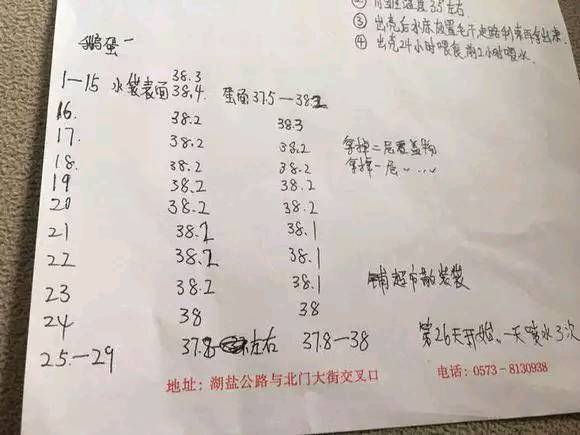 ② 育雏温度35左右
③ 出壳后水床放置毛干走路利索再拿出来.
④ 出壳24小时喂食前2小时喂水.
鹅蛋一
1—15 水袋表面 38.3 38.4. 蛋面37.5—38.2
16. 38.2 38.3
17. 38.2 38.2 拿掉二层覆盖物
18. 38.2 38.2 拿掉一层〃....
19 38.2 38.2
20 38.2 38.2
21 38.2 38.1
22 38.2 38.1
23 38.2 38.1 铺超市散装袋
24 38 38
25.—29 37.8 左右 37.8—38 第26天开始.一天喷水3次
地址: 湖盐公路与北门大街交叉口 电话: 0573-8130938